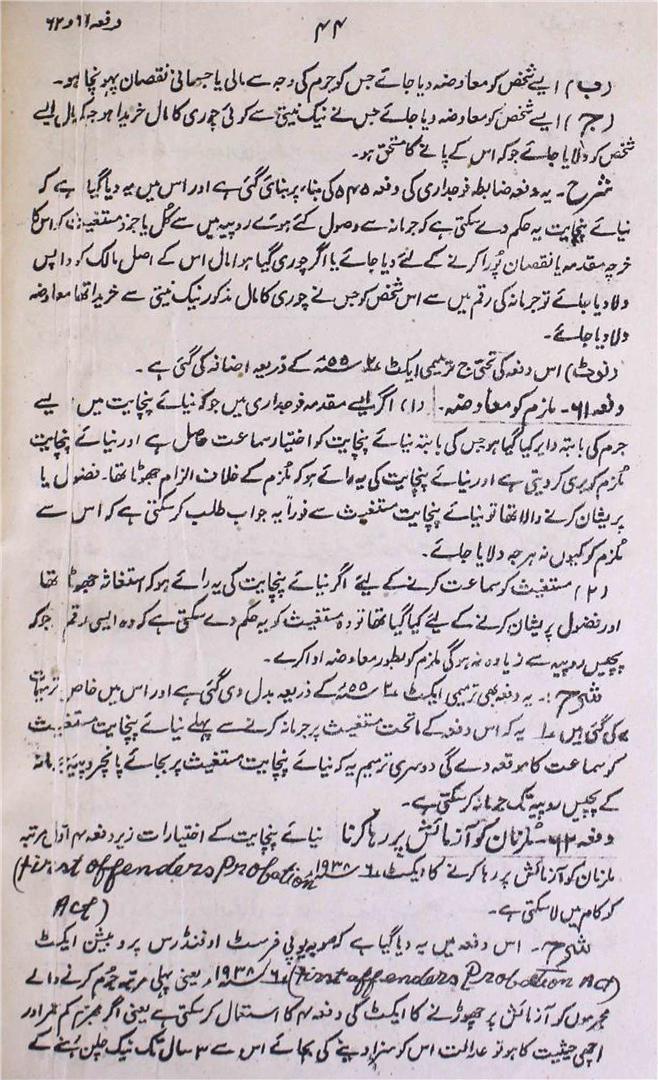 ۴۴ دفعہ ۶۱ و ۶۲
(ب) ایسے شخص کو معاوضہ دیا جائے جس کو جرم کی وجہ سے مالی یا جسمانی نقصان پہونچا ہو۔
(ج) ایسے شخص کو معاوضہ دیا جائے جس نے نیک نیتی سے کوئی چوری کا مال خریدا ہو جبکہ مال ایسے
شخص کو دلایا جائے جو کہ اس کے پانے کا مستحق ہو۔
شرح۔ یہ دفعہ ضابطہ فوجداری کی دفعہ ۵۴۵ کی بناء پر بنائی گئی ہے اور اس میں یہ دیا گیا ہے کہ
نیائے پنچایت یہ حکم دے سکتی ہے کہ جرمانہ سے وصول کئے ہوئے روپیہ میں سے کُل یا جزو مستغیث کو اس کا
خرچہ مقدمہ یا نقصان پُورا کرنے کے لئے دیا جائے یا اگر چوری گیا ہوا مال اس کے اصل مالک کو واپس
دلا دیا جائے تو جرمانہ کی رقم میں سے اس شخص کو جس نے چوری کا مال مذکور نیک نیتی سے خریدا تھا معاوضہ
دلا دیا جائے۔
(نوٹ) اس دفعہ کی تحتی ج ترمیمی ایکٹ ۲ ۵۵ء کے ذریعہ اضافہ کی گئی ہے۔
دفعہ ۶۱۔ ملزم کو معاوضہ۔ (۱) اگر ایسے مقدمہ فوجداری میں جو کہ نیائے پنچایت میں ایسے
جرم کی بابتہ دایر کیا گیا ہو جس کی بابتہ نیائے پنچایت کو اختیار سماعت حاصل ہے اور نیائے پنچایت
مُلزم کو بری کر دیتی ہے اور نیائے پنچایت کی یہ رائے ہو کہ مُلزم کے خلاف الزام جھوٹا تھا۔ فضول یا
پریشان کرنے والا تھا تو نیائے پنچایت مستغیث سے فوراً یہ جواب طلب کر سکتی ہے کہ اس سے
مُلزم کو کیوں نہ ہرجہ دلایا جائے۔
(۲) مستغیث کو سماعت کرنے کے لیئے اگر نیائے پنچایت کی یہ رائے ہو کہ استغاثہ جھوٹا تھا
اور فضول پریشان کرنے کے لیئے کیا گیا تھا تو وہ مستغیث کو یہ حکم دے سکتی ہے کہ وہ ایسی رقم جو کہ
پچیس روپیہ سے زیادہ نہ ہوگی ملزم کو بطور معاوضہ ادا کرے۔
شرح:۔ یہ دفعہ بھی ترمیمی ایکٹ ۲ ۵۵ء کے ذریعہ بدل دی گئی ہے اور اس میں خاص ترمیمات
کی گئی ہیں ۱۔ یہ کہ اس دفعہ کے ماتحت مستغیث پر جرمانہ کرنے سے پہلے نیائے پنچایت مستغیث
کو سماعت کا موقعہ دے گی دوسری ترمیم یہ کہ نیائے پنچایت مستغیث پر بجائے پانچ روپیہ جرمانہ
کے پچیس روپیہ تک جرمانہ کر سکتی ہے۔
دفعہ ۶۲۔ ملزمان کو آزمائش پر رہا کرنا نیائے پنچایت کے اختیارات زیر دفعہ ۴ اوّل مرتبہ
ملزمان کو آزمائش پر رہا کرنے کا ایکٹ ۶ ۱۹۳۸ء (First offenders Probation
Act)
کو کام میں لا سکتی ہے۔
شرح۔ اس دفعہ میں یہ دیا گیا ہے کہ صوبہ یو پی فرسٹ اوفنڈرس پروبیشن ایکٹ
۶ ۱۹۳۸ء (First offenders Probation Act) یعنی پہلی مرتبہ جُرم کرنے والے
مجرموں کو آزمائش پر چھوڑنے کا ایکٹ کی دفعہ ۴ کا استعمال کر سکتی ہے یعنی اگر مجرم کم عمر اور
اچھی حیثیت کا ہو تو عدالت اس کو سزا دینے کی بجائے اس سے ۳ سال تک نیک چلن رہنے کے